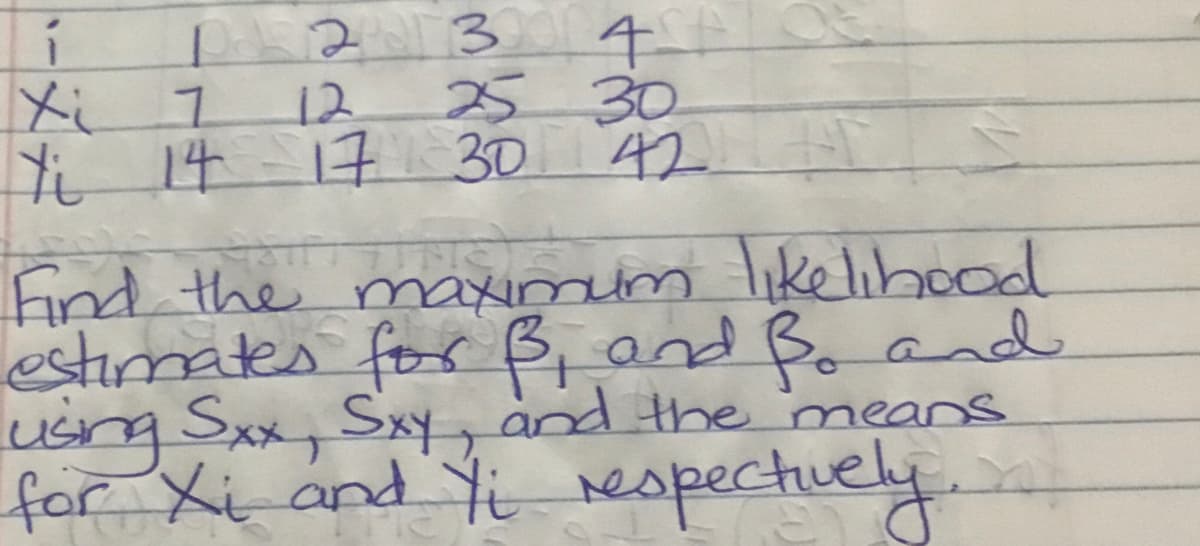 i 1 2 3 4
Xi 7 12 25 30
Yi 14 17 30 42
Find the maximum likelihood
estimates for β1 and β0 and
using Sxx, Sxy, and the means
for Xi and Yi respectively.